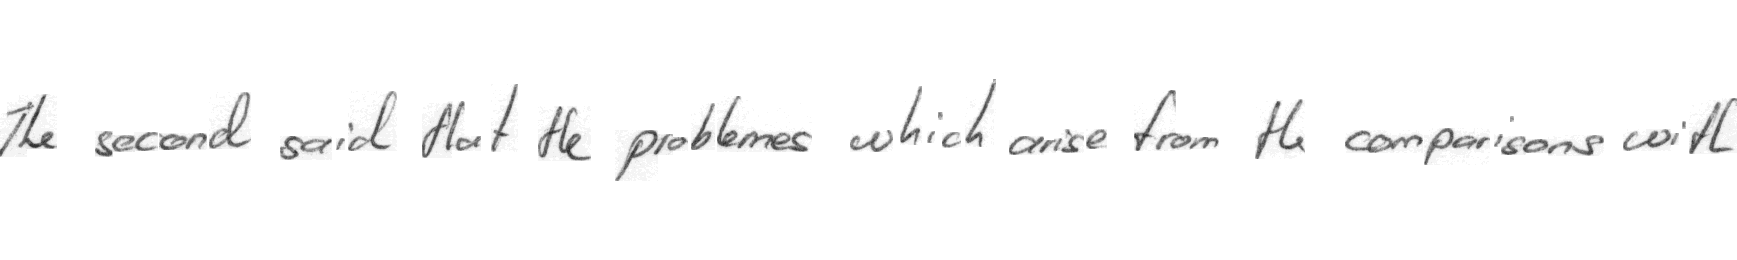 The second said that the problemes which arise from the comparisons with